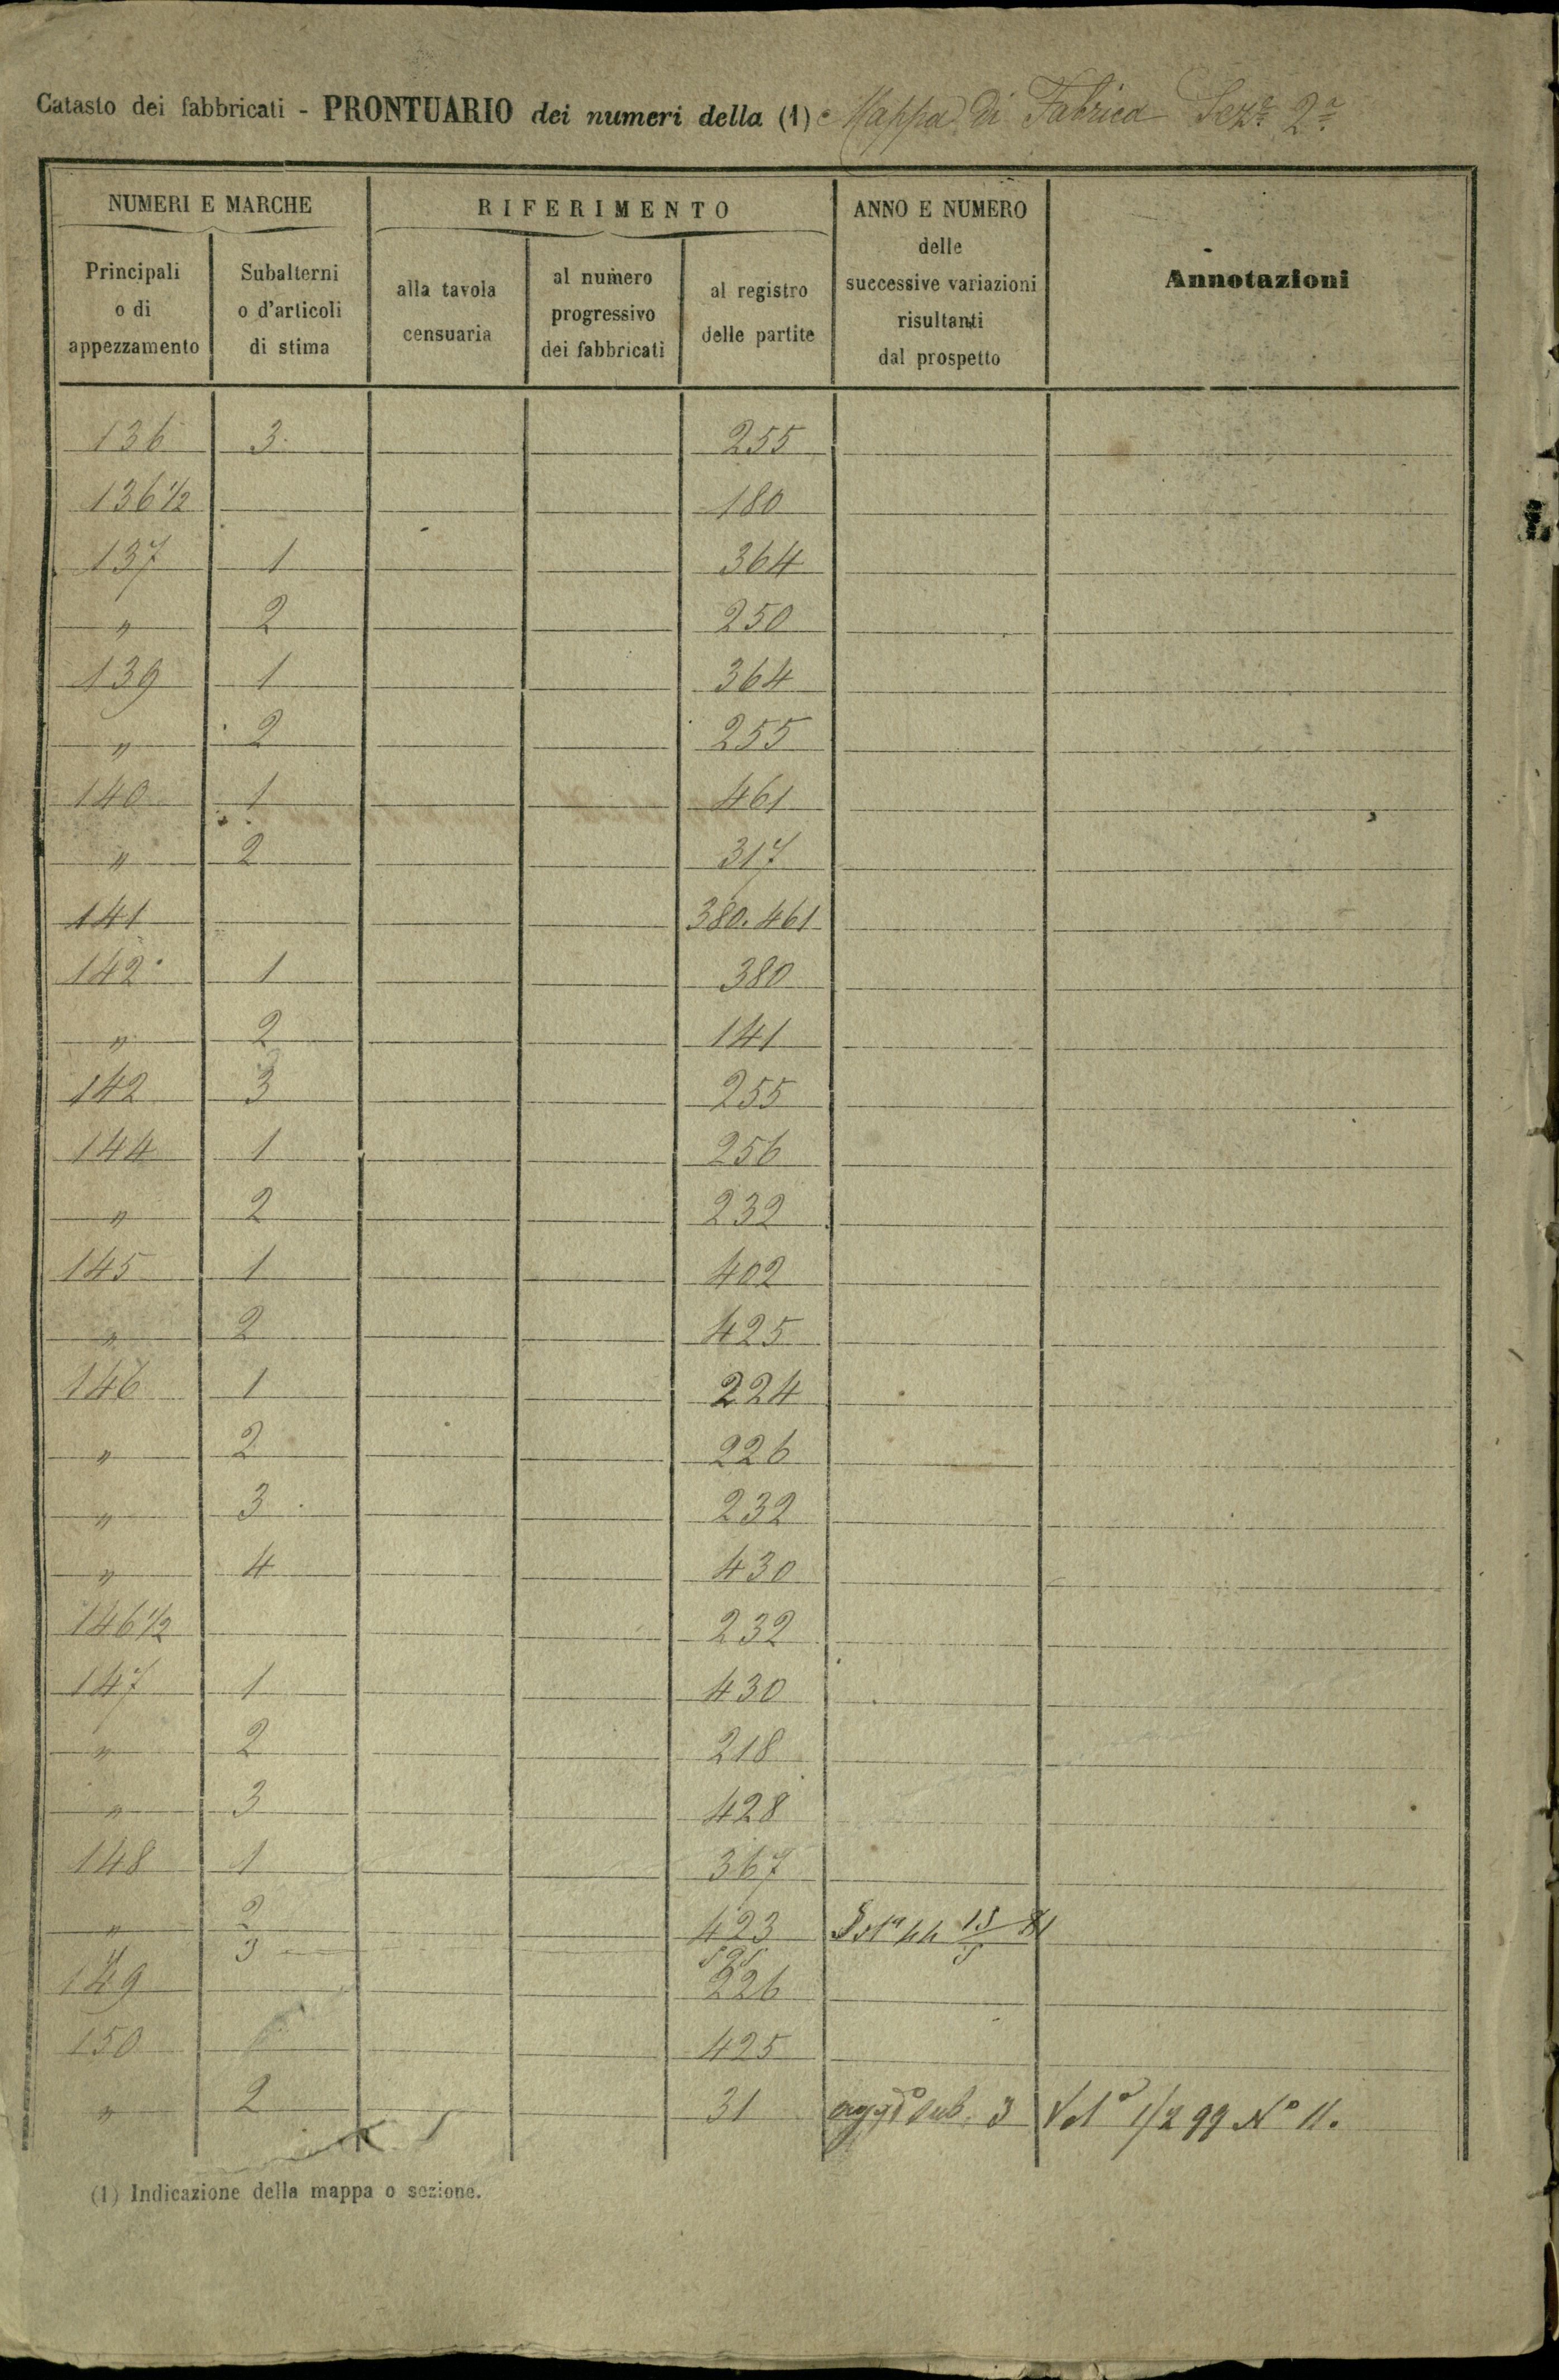 Catasto dei fabbricati - PRONTUARIO dei numeri della (1) Mappa di Fabrica Sez.e 2.a
NUMERI E MARCHE
RIFERIMENTO
ANNO E NUMERO delle successive variazioni risultanti dal prospetto
Annotazioni
Principali o di appezzamento
Subalterni o d'articoli di stima
alla tavola censuaria
al numero progressivo dei fabbricati
al registro delle partite
136 3 255
136 1/2 180
137 1 364
" 2 250
139 1 364
" 2 255
140 1 461
" 2 317
141 380. 461
142 1 380
" 2 141
142 3 255
144 1 256
" 2 232
145 1 402
" 2 425
146 1 224
" 2 226
" 3 232
" 4 430
146 1/2 232
147 1 430
" 2 218
" 3 428
148 1 367
" 2 423
3
149 226
150 1 425
" 2 31 sub. 3 N° 11.
(1) Indicazione della mappa o sezione.